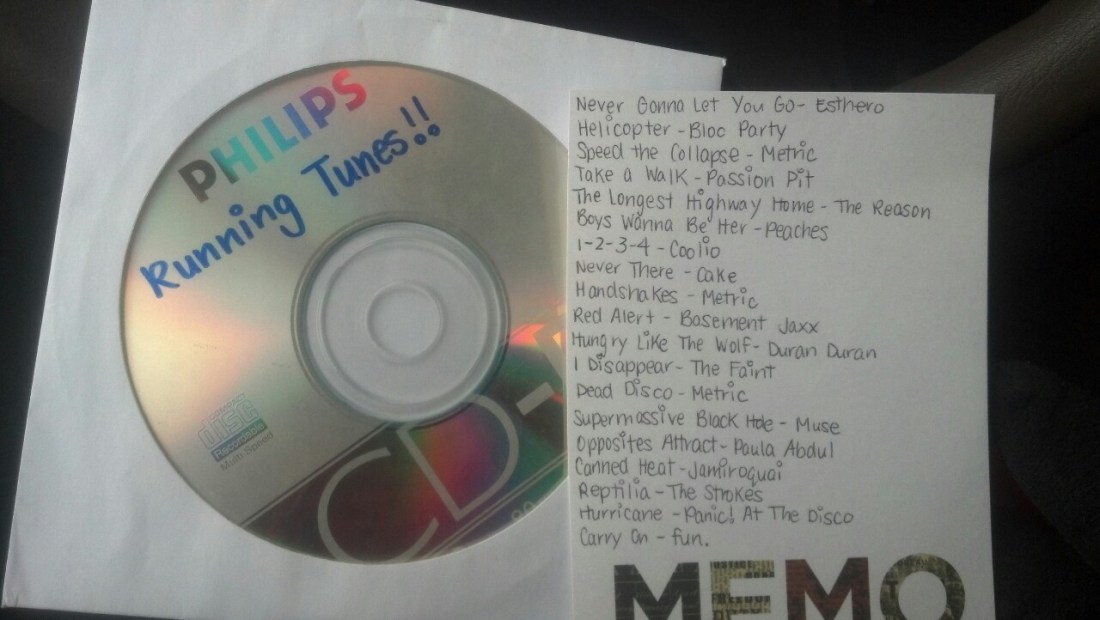 PHILIPS
Running Tunes!!
COMPACT
disc
Recordable
Multi Speed
CD-
Never Gonna Let You Go- Esthero
Helicopter - Bloc Party
Speed the Collapse - Metric
Take a Walk - Passion Pit
The Longest Highway Home - The Reason
Boys Wanna Be Her - Peaches
1-2-3-4 - Coolio
Never There - Cake
Handshakes - Metric
Red Alert - Basement Jaxx
Hungry Like The Wolf- Duran Duran
I Disappear - The Faint
Dead Disco - Metric
Supermassive Black Hole - Muse
Opposites Attract - Paula Abdul
Canned Heat - Jamiroquai
Reptilia - The Strokes
Hurricane - Panic! At The Disco
Carry On - fun.
MEMO